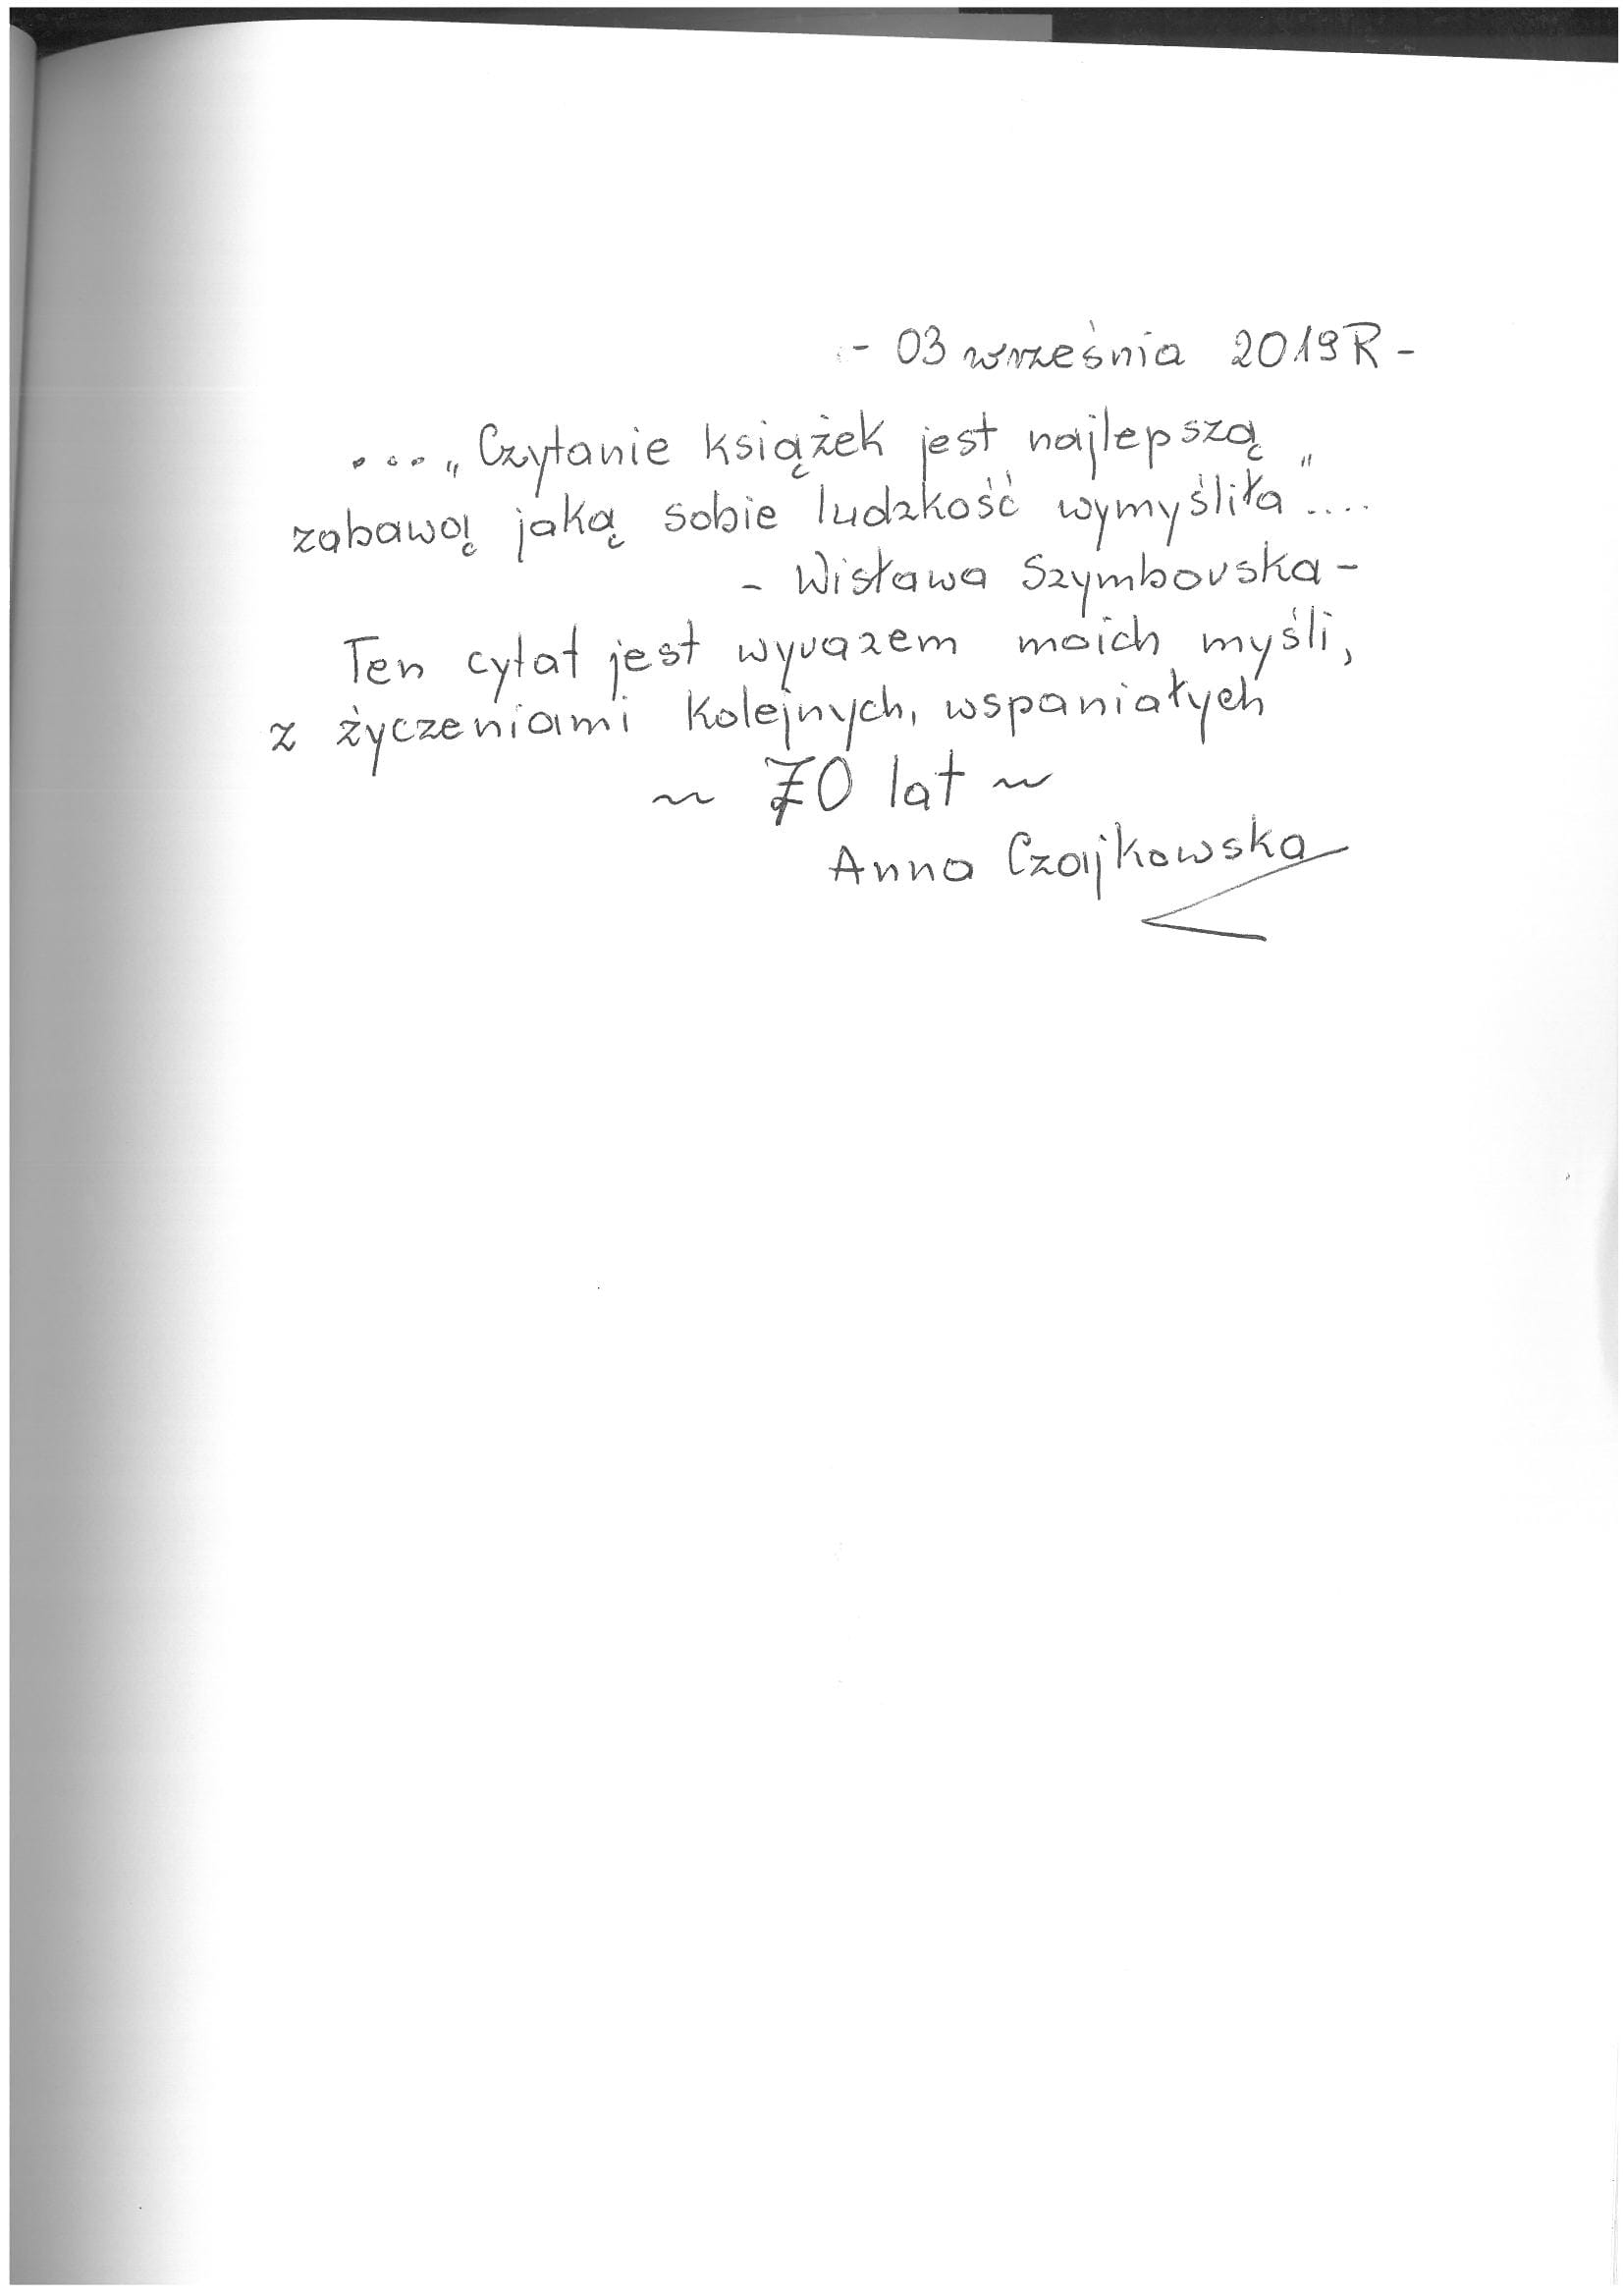 - 03 września 2019R -
...."Czytanie książek jest najlepszą
zabawą jaką sobie ludzkość wymyśliła"....
- Wisława Szymborska -
Ten cytat jest wyrazem moich myśli,
z życzeniami kolejnych, wspaniałych
~ 70 lat ~
Anna Czajkowska